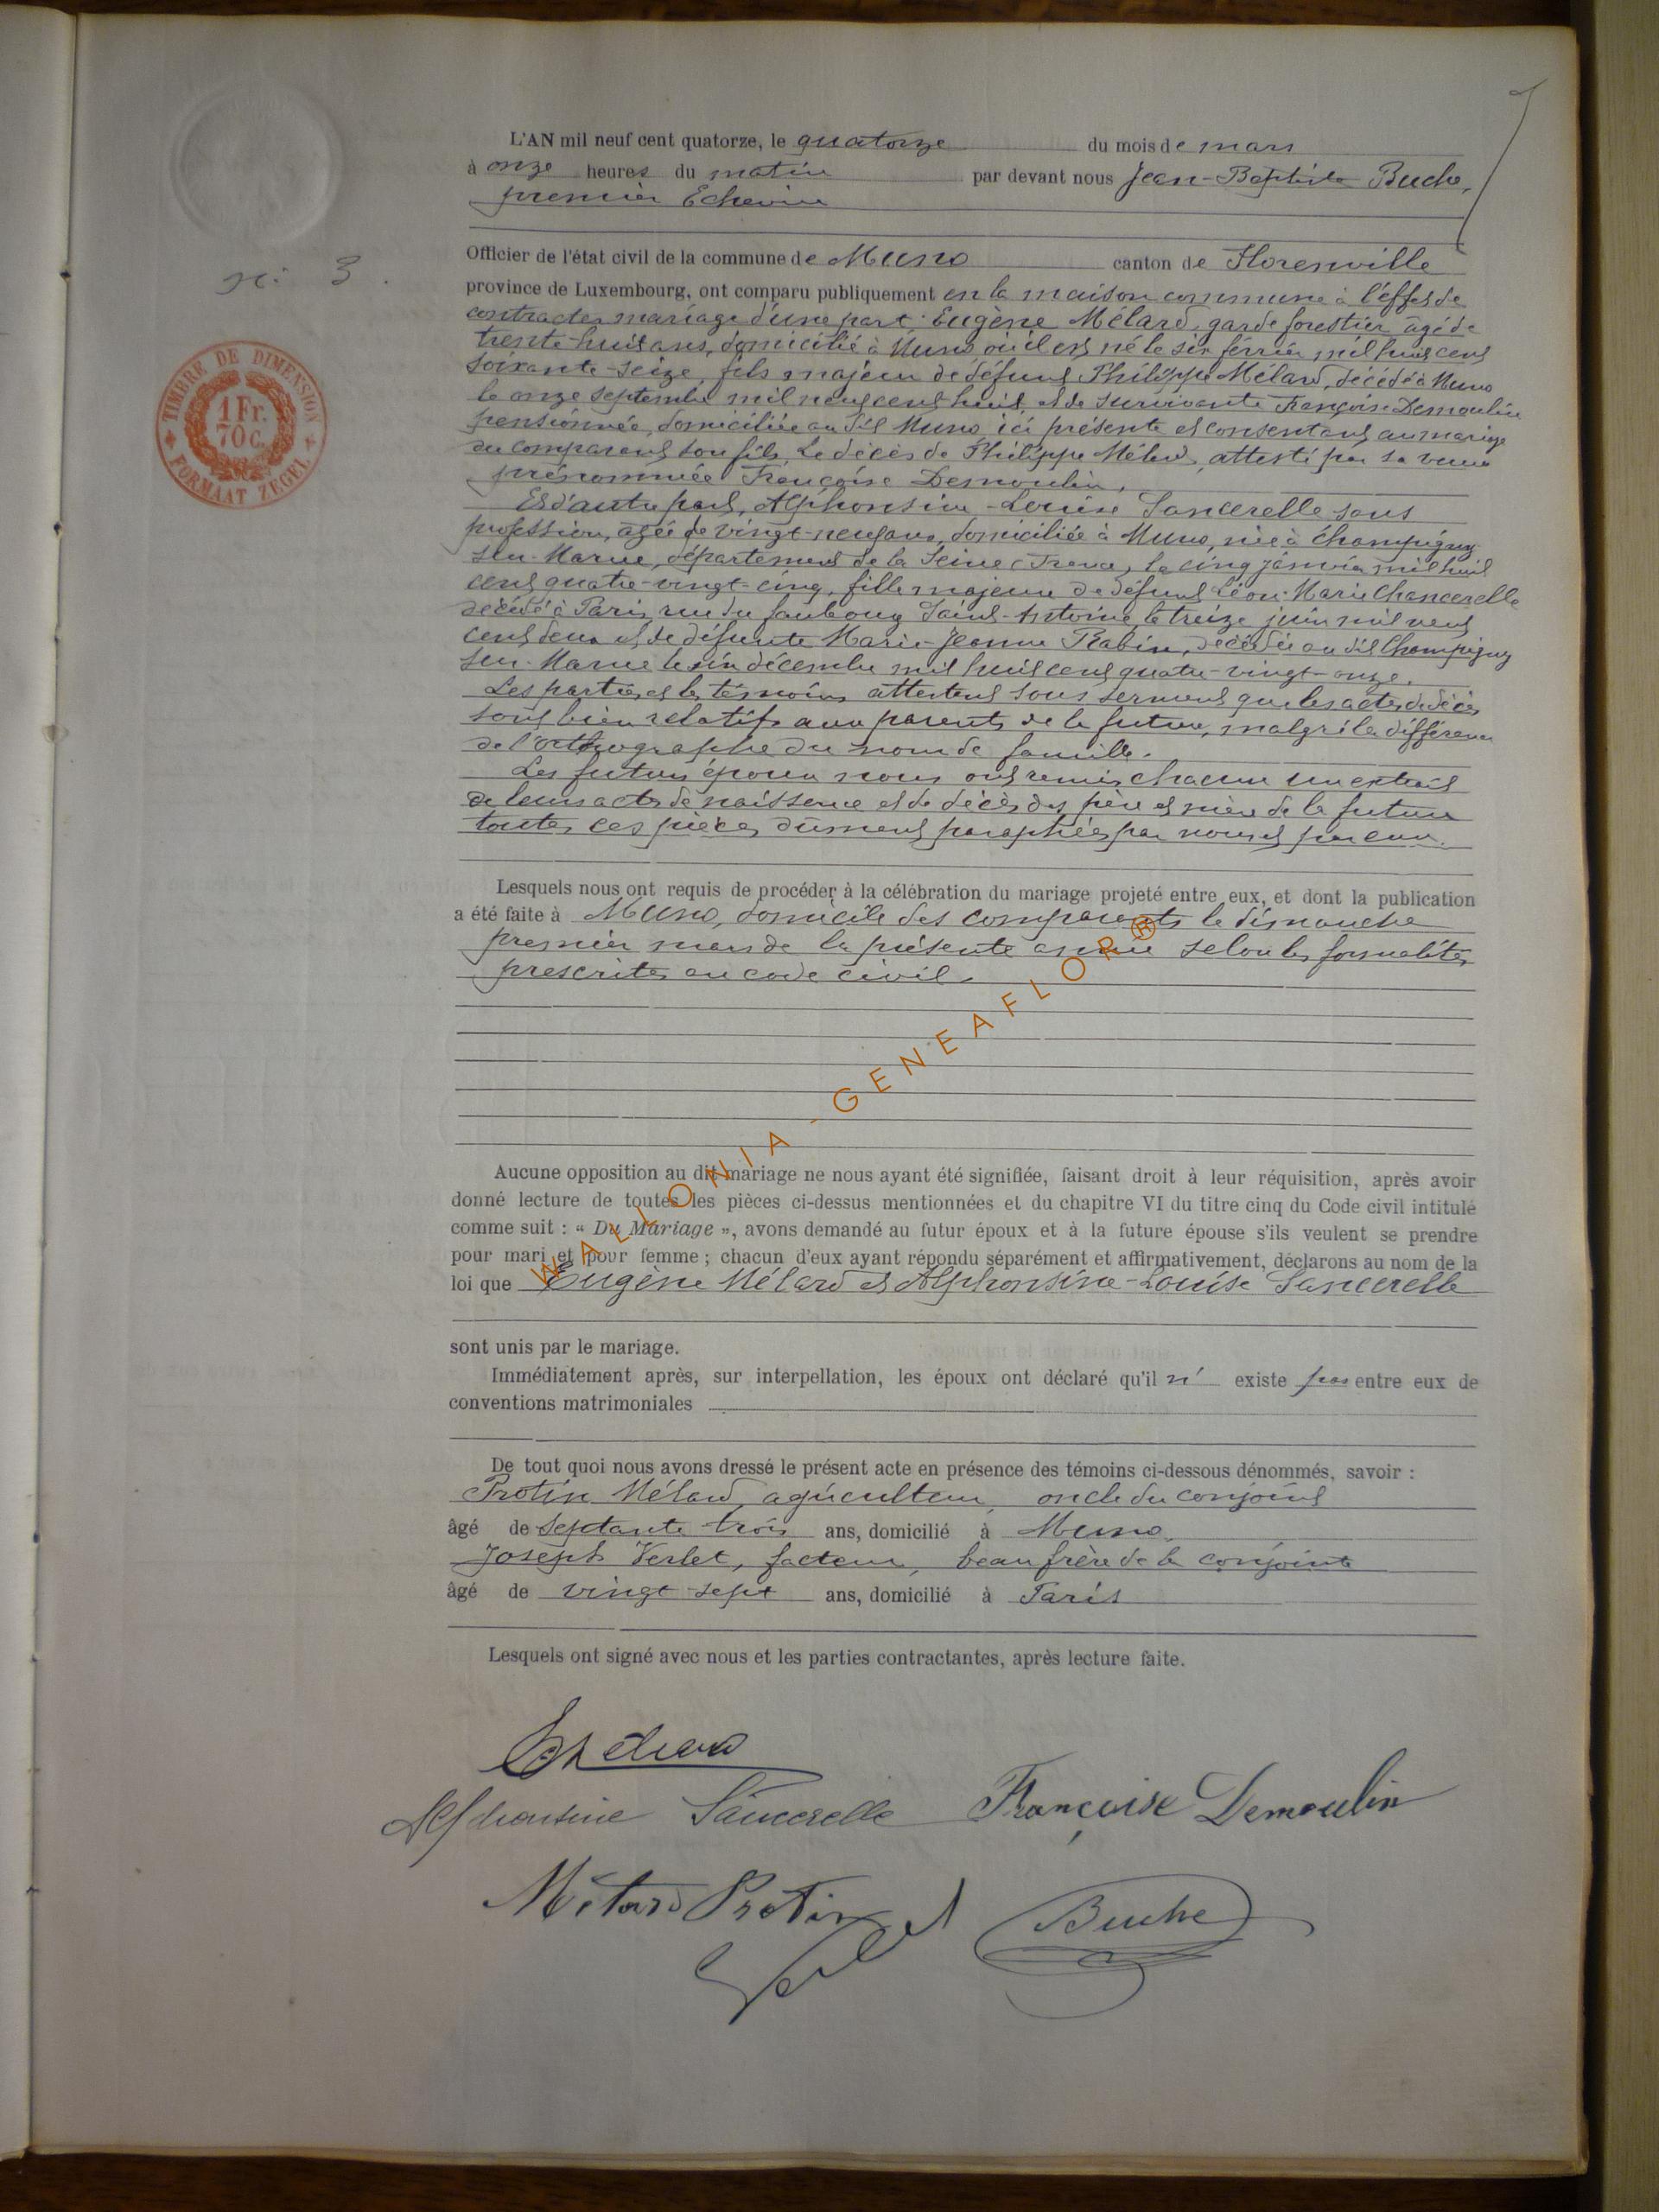 L'AN mil neuf cent quatorze, le quatorze du mois de mars
à onze heures du matin par devant nous Jean-Baptiste Buche,
premier Echevin
Officier de l'état civil de la commune de Muno canton de Florenville
n: 3.
province de Luxembourg, ont comparu publiquement en la maison commune à l'effet de
contracter mariage d'une part: Eugène Mélard, garde forestier âgé de
trente-huit ans, domicilié à Muno où il est né le six février mil huit cent
soixante-seize, fils majeur de défunt Philippe Mélard, décédé à Muno
le onze septembre mil neuf cent huit et de survivante Françoise Demoulin
pensionnée, domiciliée au dit Muno ici présente et consentant au mariage
du comparant son fils. Le décès de Philippe Mélard, attesté par sa veuve
prénommée Françoise Demoulin.
Et d'autre part, Alphonsine-Louise Sancerelle sans
profession, âgée de vingt-neuf ans, domiciliée à Muno, née à Champigny
sur-Marne, département de la Seine (France) le cinq janvier mil huit
cent quatre-vingt-cinq, fille majeure de défunt Léon-Marie Chancerelle
décédé à Paris, rue du faubourg Saint-Antoine, le treize juin mil neuf
cent deux et de défunte Marie-Jeanne Rabin, décédée au dit Champigny
sur-Marne le six décembre mil huit cent quatre-vingt-onze.
Les parties et les témoins attestent sous serment que les actes de décès
sont bien relatifs aux parents de la future, malgré la différence
de l'orthographe du nom de famille.
Les futurs époux nous ont remis chacun un extrait
de leurs actes de naissance et de décès des père et mère de la future
toutes ces pièces dûment paraphées par nous et par eux.
Lesquels nous ont requis de procéder à la célébration du mariage projeté entre eux, et dont la publication
a été faite à Muno, domicile des comparents le dimanche
premier mars de la présente année selon les formalités
prescrites au code civil.
Aucune opposition au dit mariage ne nous ayant été signifiée, faisant droit à leur réquisition, après avoir
donné lecture de toutes les pièces ci-dessus mentionnées et du chapitre VI du titre cinq du Code civil intitulé
comme suit : « Du Mariage », avons demandé au futur époux et à la future épouse s'ils veulent se prendre
pour mari et pour femme ; chacun d'eux ayant répondu séparément et affirmativement, déclarons au nom de la
loi que Eugène Mélard et Alphonsine-Louise Sancerelle
sont unis par le mariage.
Immédiatement après, sur interpellation, les époux ont déclaré qu'il n' existe pas entre eux de
conventions matrimoniales
De tout quoi nous avons dressé le présent acte en présence des témoins ci-dessous dénommés, savoir :
Protin Mélard, agriculteur, oncle du conjoint
âgé de septante trois ans, domicilié à Muno.
Joseph Verlet, facteur, beau frère de la conjointe
âgé de vingt sept ans, domicilié à Paris
Lesquels ont signé avec nous et les parties contractantes, après lecture faite.
Alphonsine Sancerelle Françoise Demoulin
Mélard Protin Buche
TIMBRE DE DIMENSION
1 Fr.
70 c.
FORMAAT ZEGEL
WALLONIA-GENEAFLOR®